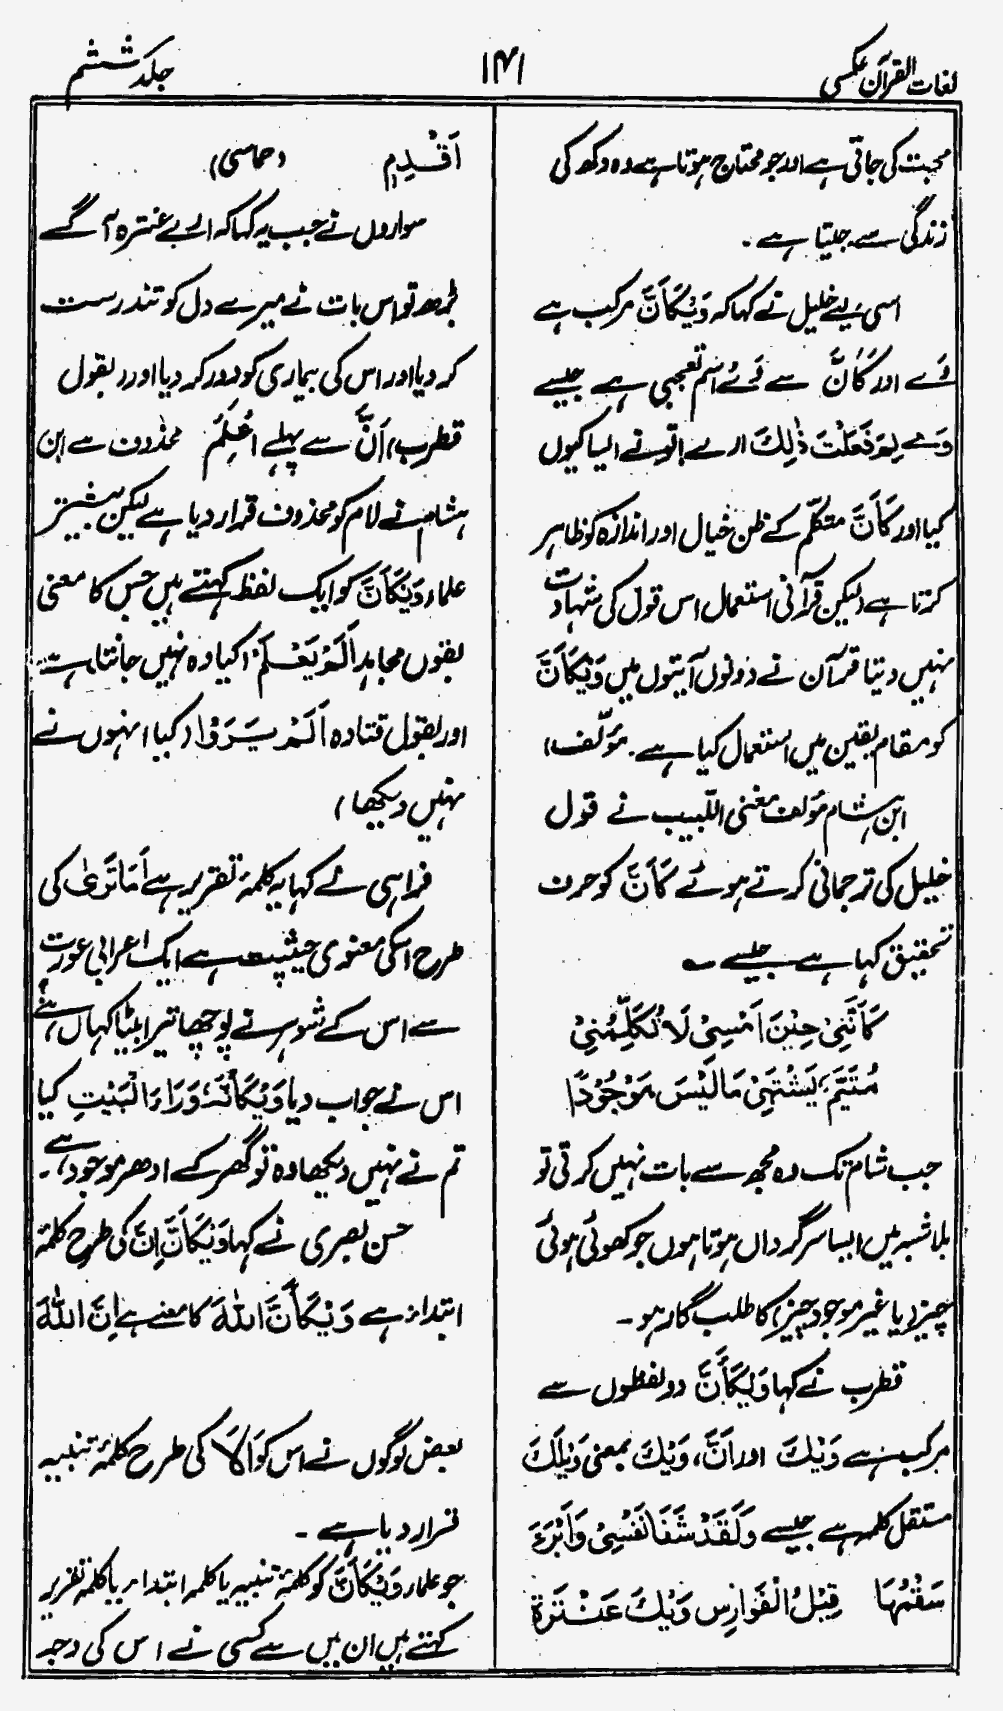 لغات القرآن عکسی
۱۴۱
جلد ششم
محبت کی جاتی ہے اور جو محتاج ہوتا ہے وہ دکھ کی
زندگی سے جیتا ہے۔
اسی لیے خلیل نے کہا کہ وَیْکَاَنَّ مرکب ہے
وَے اور کَاَنَّ سے وَےْ اسم تعجبی ہے جیسے
وَے لِمَ فَعَلْتَ ذٰلِکَ ارے! تو نے ایسا کیوں
کیا اور کَاَنَّ متکلّم کے ظن خیال اور اندازہ کو ظاہر
کرتا ہے (لیکن قرآنی استعمال اس قول کی شہادت
نہیں دیتا قرآن نے دونوں آیتوں میں وَیْکَاَنَّ
کو مقام یقین میں استعمال کیا ہے۔ مؤلّف)
ابن ہشام مؤلف مغنی اللّبیب نے قول
خلیل کی ترجمانی کرتے ہوئے کَاَنَّ کو حرف
تحقیق کہا ہے جیسے ؎
کَاَنَّنِیْ حِیْنَ اَمْسِیْ لَا تُکَلِّمُنِیْ
مُتَیَّمٌ یَشْتَھِیْ مَا لَیْسَ مَوْجُوْدًا
جب شام تک وہ مجھ سے بات نہیں کرتی تو
بلا شبہ میں ایسا سرگرداں ہوتا ہوں جو کھوئی ہوئی
چیز (یا غیر موجود چیز) کا طلب گار ہو۔
قطرب نے کہا وَیْکَاَنَّ دو لفظوں سے
مرکب ہے وَیْکَ اور اَنَّ، وَیْکَ بمعنی وَیْلَکَ
مستقل کلمہ ہے جیسے وَلَقَدْ شَفَا نَفْسِیْ وَاَبْرَءَ
سَقْمُھَا قِیْلُ الْفَوَارِسِ وَیْکَ عَنْتَرَۃَ
اَقْدِمٖ (حماسی)
سواروں نے جب یہ کہا کہ ارے عنترہ آگے
بڑھ تو اس بات نے میرے دل کو تندرست
کر دیا اور اس کی بیماری کو دور کر دیا اور (بقول
قطرب) اَنَّ سے پہلے اَعْلَمُ محذوف ہے ابن
ہشام نے لام کو محذوف قرار دیا ہے لیکن بیشتر
علماء وَیْکَاَنَّ کو ایک لفظ کہتے ہیں جس کا معنی
بقول مجاہد اَلَمْ یَعْلَمْ (کیا وہ نہیں جانتا) ہے
اور بقول قتادہ اَلَمْ یَرَوْا (کیا انہوں نے
نہیں دیکھا)
فراہی نے کہا یہ کلمۂ تقریر ہے اَمَا تَرَیٰ کی
طرح اسکی معنوی حیثیت ہے ایک اعرابی عورت
سے اس کے شوہر نے پوچھا تیرا بیٹا کہاں ہے؟
اس نے جواب دیا وَیْکَاَنَّہٗ وَرَاءَ الْبَیْتِ کیا
تم نے نہیں دیکھا وہ تو گھر کے ادھر موجود ہے۔
حسن بصری نے کہا وَیْکَاَنَّ اِنَّ کی طرح کلمۂ
ابتداء ہے وَیْکَاَنَّ اللّٰہَ کا معنے ہے اِنَّ اللّٰہَ
بعض لوگوں نے اس کو اَلَا کی طرح کلمۂ تنبیہ
قرار دیا ہے۔
جو علماء وَیْکَاَنَّ کو کلمۂ تنبیہ یا کلمہ ابتداء یا کلمۂ تقریر
کہتے ہیں ان میں سے کسی نے اس کی وجہ